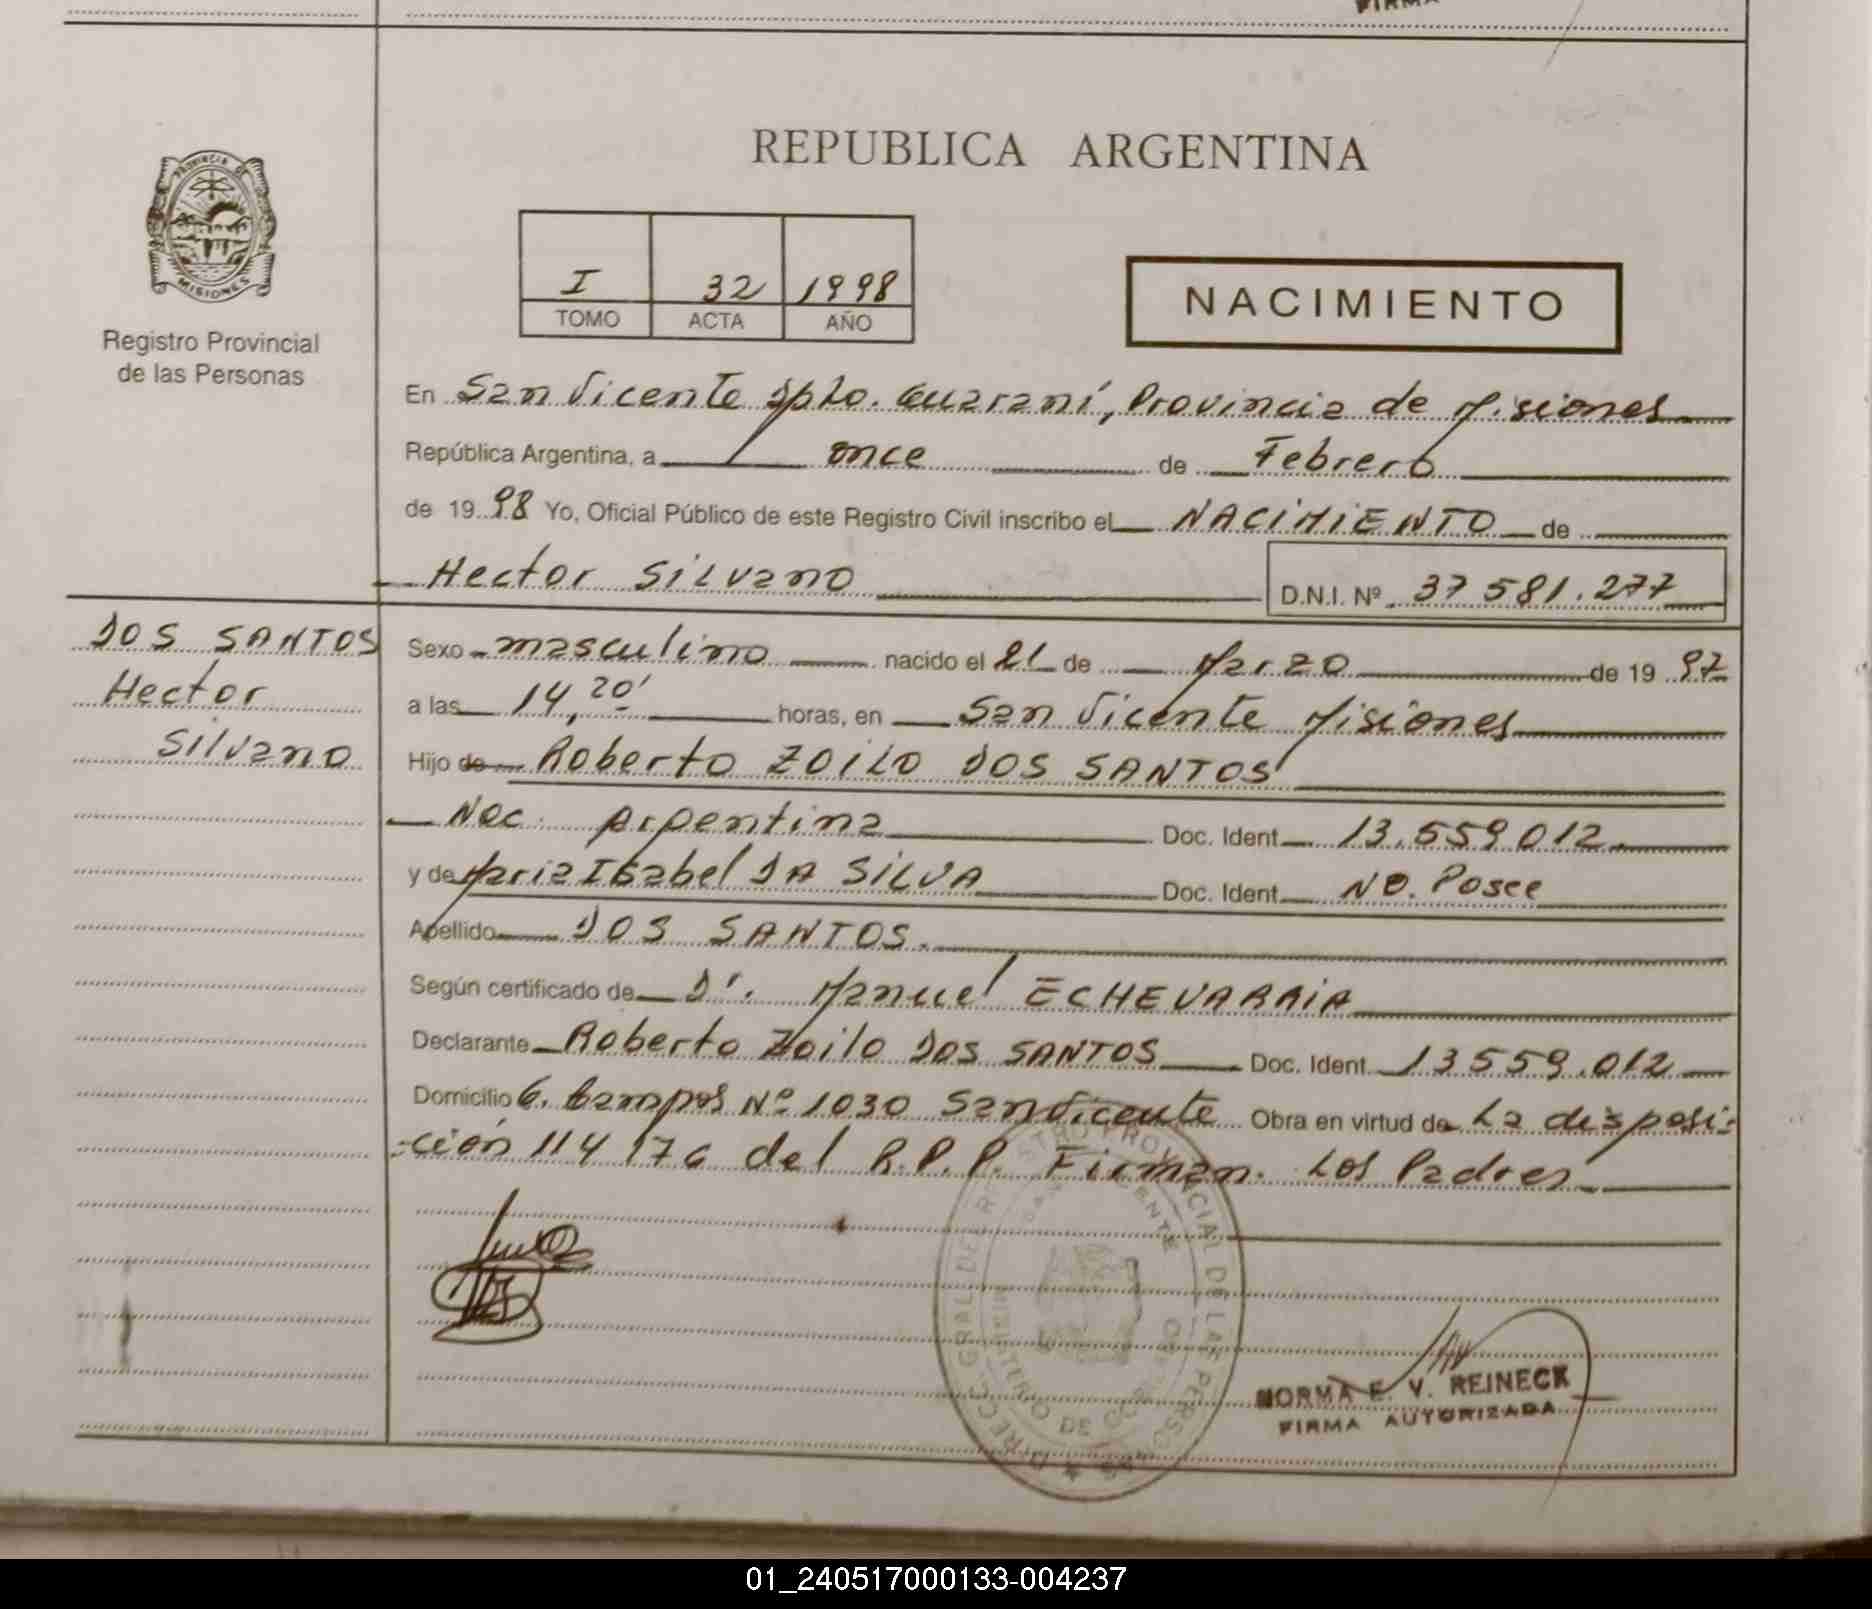 FIRMA
REPUBLICA ARGENTINA
PROVINCIA DE
MISIONES
Registro Provincial
de las Personas
I 32 1998
TOMO ACTA AÑO
NACIMIENTO
En San Vicente Dpto. Guaraní, Provincia de Misiones
República Argentina, a once de Febrero
de 1998 Yo, Oficial Público de este Registro Civil inscribo el NACIMIENTO de
Hector Silvano D.N.I. Nº 37 581.277
DOS SANTOS
Hector
Silvano
Sexo masculino nacido el 21 de Marzo de 1997
a las 14,20' horas, en San Vicente Misiones
Hijo de Roberto Zoilo DOS SANTOS
Nac. Argentina Doc. Ident. 13.559.012.
y de Maria Isabel DA SILVA Doc. Ident. NO. Posee
Apellido DOS SANTOS.
Según certificado de Dr. Manuel ECHEVARRIA
Declarante Roberto Zoilo DOS SANTOS Doc. Ident. 13559.012
Domicilio G. Campos Nº 1030 San Vicente Obra en virtud de La disposi-
-ción 114 176 del R.P.P. Firman. Los Padres
NORMA E. V. REINECK
FIRMA AUTORIZADA
01_240517000133-004237